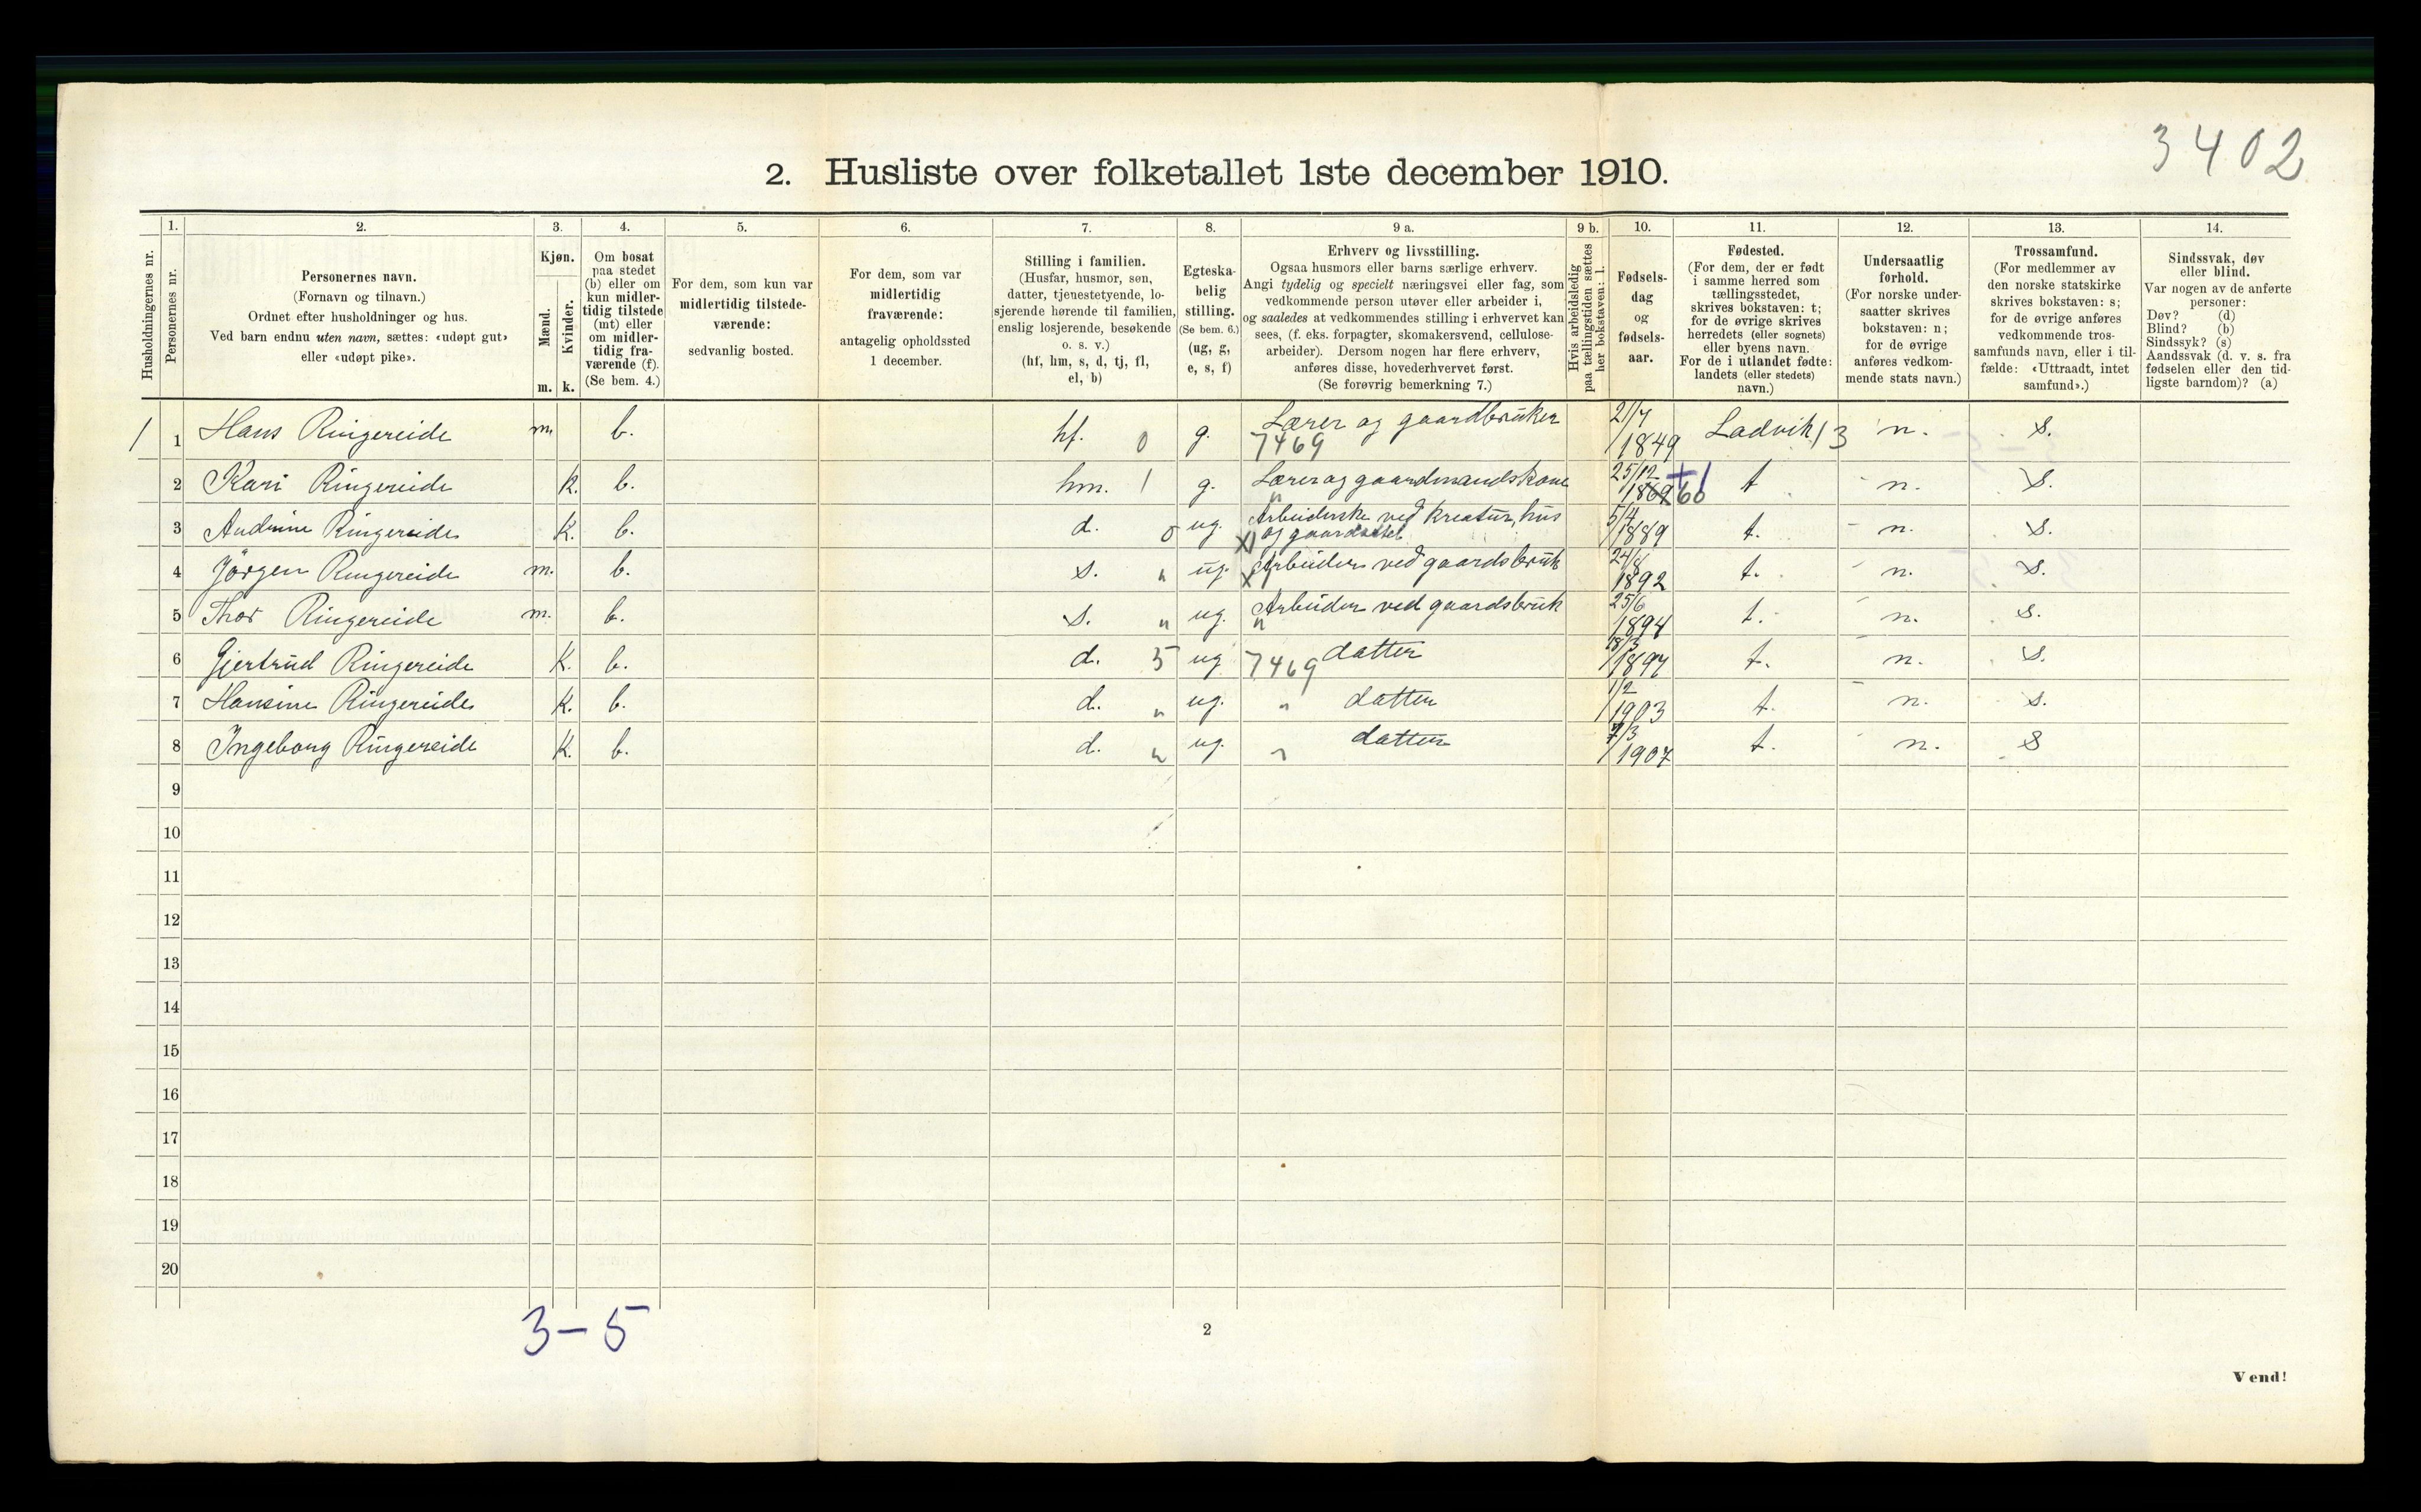 3402
2. Husliste over folketallet 1ste december 1910.
Husholdningernes nr.
1.
Personernes nr.
2.
Personernes navn.
(Fornavn og tilnavn.)
Ordnet efter husholdninger og hus.
Ved barn endnu uten navn, sættes: «udøpt gut»
eller «udøpt pike».
3.
Kjøn.
Mænd.
Kvinder.
m. k.
4.
Om bosat
paa stedet
(b) eller om
kun midler-
tidig tilstede
(mt) eller
om midler-
tidig fra-
værende (f).
(Se bem. 4.)
5.
For dem, som kun var
midlertidig tilstede-
værende:
sedvanlig bosted.
6.
For dem, som var
midlertidig
fraværende:
antagelig opholdssted
1 december.
7.
Stilling i familien.
(Husfar, husmor, søn,
datter, tjenestetyende, lo-
sjerende hørende til familien,
enslig losjerende, besøkende
o. s. v.)
(hf, hm, s, d, tj, fl,
el, b)
8.
Egteska-
belig
stilling.
(Se bem. 6.)
(ug, g,
e, s, f)
9 a.
Erhverv og livsstilling.
Ogsaa husmors eller barns særlige erhverv.
Angi tydelig og specielt næringsvei eller fag, som
vedkommende person utøver eller arbeider i,
og saaledes at vedkommendes stilling i erhvervet kan
sees, (f. eks. forpagter, skomakersvend, cellulose-
arbeider). Dersom nogen har flere erhverv,
anføres disse, hovederhvervet først.
(Se forøvrig bemerkning 7.)
9 b.
Hvis arbeidsledig
paa tællingstiden sættes
her bokstaven: l.
10.
Fødsels-
dag
og
fødsels-
aar.
11.
Fødested.
(For dem, der er født
i samme herred som
tællingsstedet,
skrives bokstaven: t;
for de øvrige skrives
herredets (eller sognets)
eller byens navn.
For de i utlandet fødte:
landets (eller stedets)
navn.)
12.
Undersaatlig
forhold.
(For norske under-
saatter skrives
bokstaven: n;
for de øvrige
anføres vedkom-
mende stats navn.)
13.
Trossamfund.
(For medlemmer av
den norske statskirke
skrives bokstaven: s;
for de øvrige anføres
vedkommende tros-
samfunds navn, eller i til-
fælde: «Uttraadt, intet
samfund».)
14.
Sindssvak, døv
eller blind.
Var nogen av de anførte
personer:
Døv? (d)
Blind? (b)
Sindssyk? (s)
Aandssvak (d. v. s. fra
fødselen eller den tid-
ligste barndom)? (a)
1 1 Hans Ringereide m. b. hf. 0 g. Lærer og gaardbruker 7469 1849 Ladvik 13 n. s.
2 Kari Ringereide k. b. hm. 1 g. Lærer og gaardmandskone " 25/12 1869 60 t n. s.
3 Andrine Ringereide k. b. d. 0 ug. Arbeiderske ved kreatur, hus og gaardsstel 5/4 1889 t. n. s.
4 Jörgen Ringereide m. b. s. " ug. x Arbeider ved gaardsbruk 24/8 1892 t. n. s.
5 Thor Ringereide m. b. s. " ug. " Arbeider ved gaardsbruk 25/6 1894 t. n. s.
6 Gjertrud Ringereide k. b. d. 5 ug 7469 datter 18/3 1897 t. n. s.
7 Hansine Ringereide k. b. d. " ug. " datter 1/2 1903 t. n. s.
8 Ingeborg Ringereide k. b. d. " ug. " datter 7/3 1907 t. n. s
9
10
11
12
13
14
15
16
17
18
19
20
3-5
2
Vend!